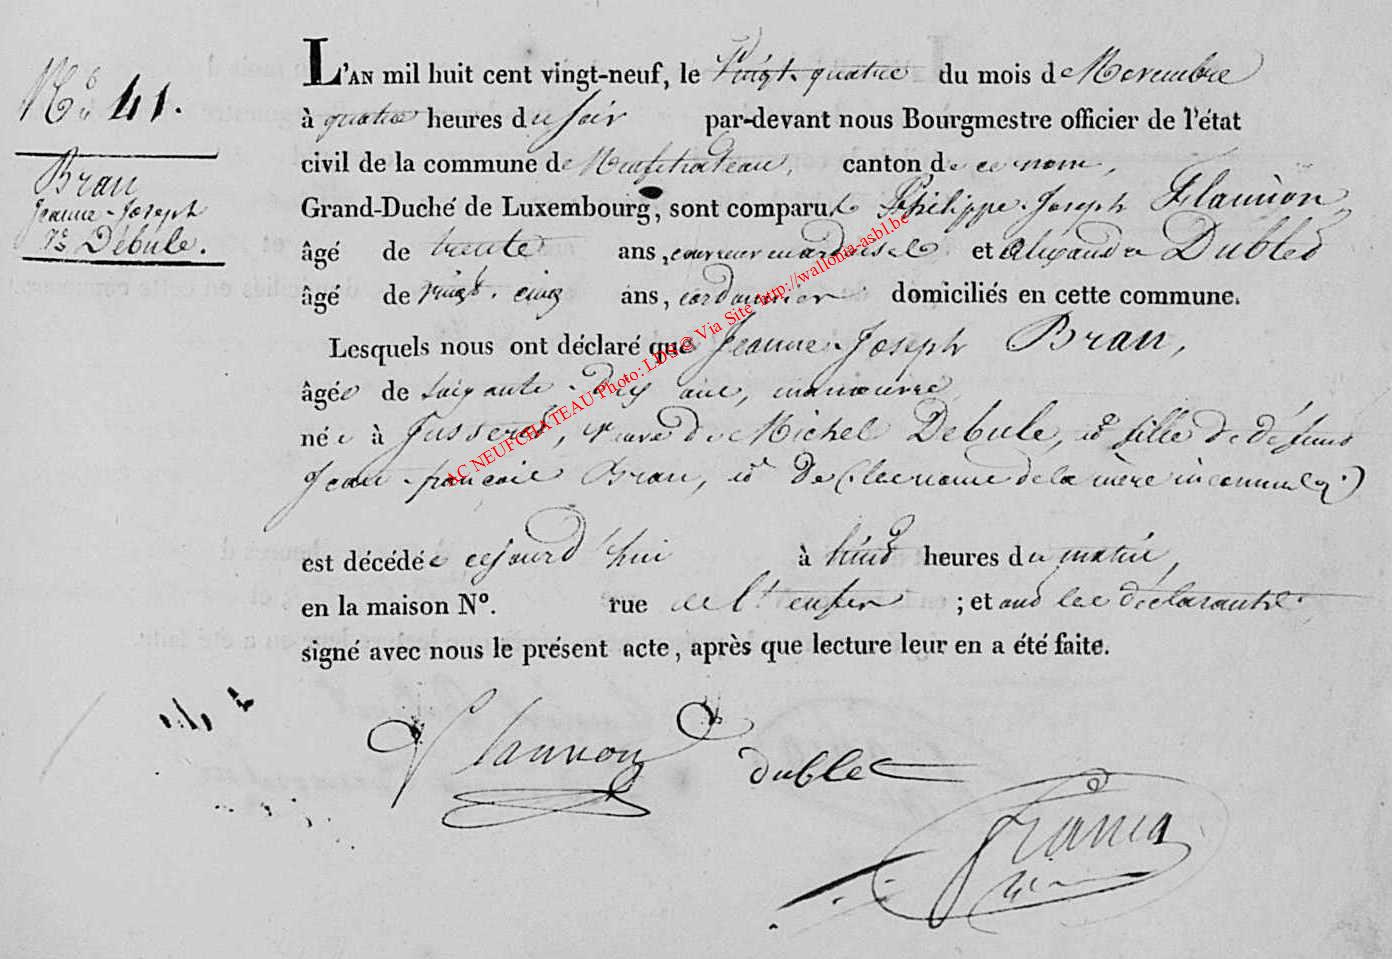 No 41.
Bran
Jeanne-Joseph
Ve Debule.
L'AN mil huit cent vingt-neuf, le Vingt quatre du mois de Novembre
à quatre heures du soir par-devant nous Bourgmestre officier de l'état
civil de la commune de Neufchateau, canton de ce nom,
Grand-Duché de Luxembourg, sont comparut Philippe-Joseph Flamion,
âgé de trente ans, couvreur en ardoises et Alexandre Dublet
âgé de vingt-cinq ans, cordonnier domiciliés en cette commune.
Lesquels nous ont déclaré que Jeanne-Joseph Bran,
âgée de soixante-dix ans, manoeuvre,
née à Jusseret, veuve de Michel Debule, et fille de défunt
Jean-françois Bran, et de (le nom de la mère inconnu)
est décédée cejourd'hui à huit heures du matin,
en la maison No. rue de l'enfer ; et ont les déclarants
signé avec nous le présent acte, après que lecture leur en a été faite.
Flamion
dublet
AC NEUFCHATEAU Photo: LDS @ Via Site http://wallonia-asbl.be